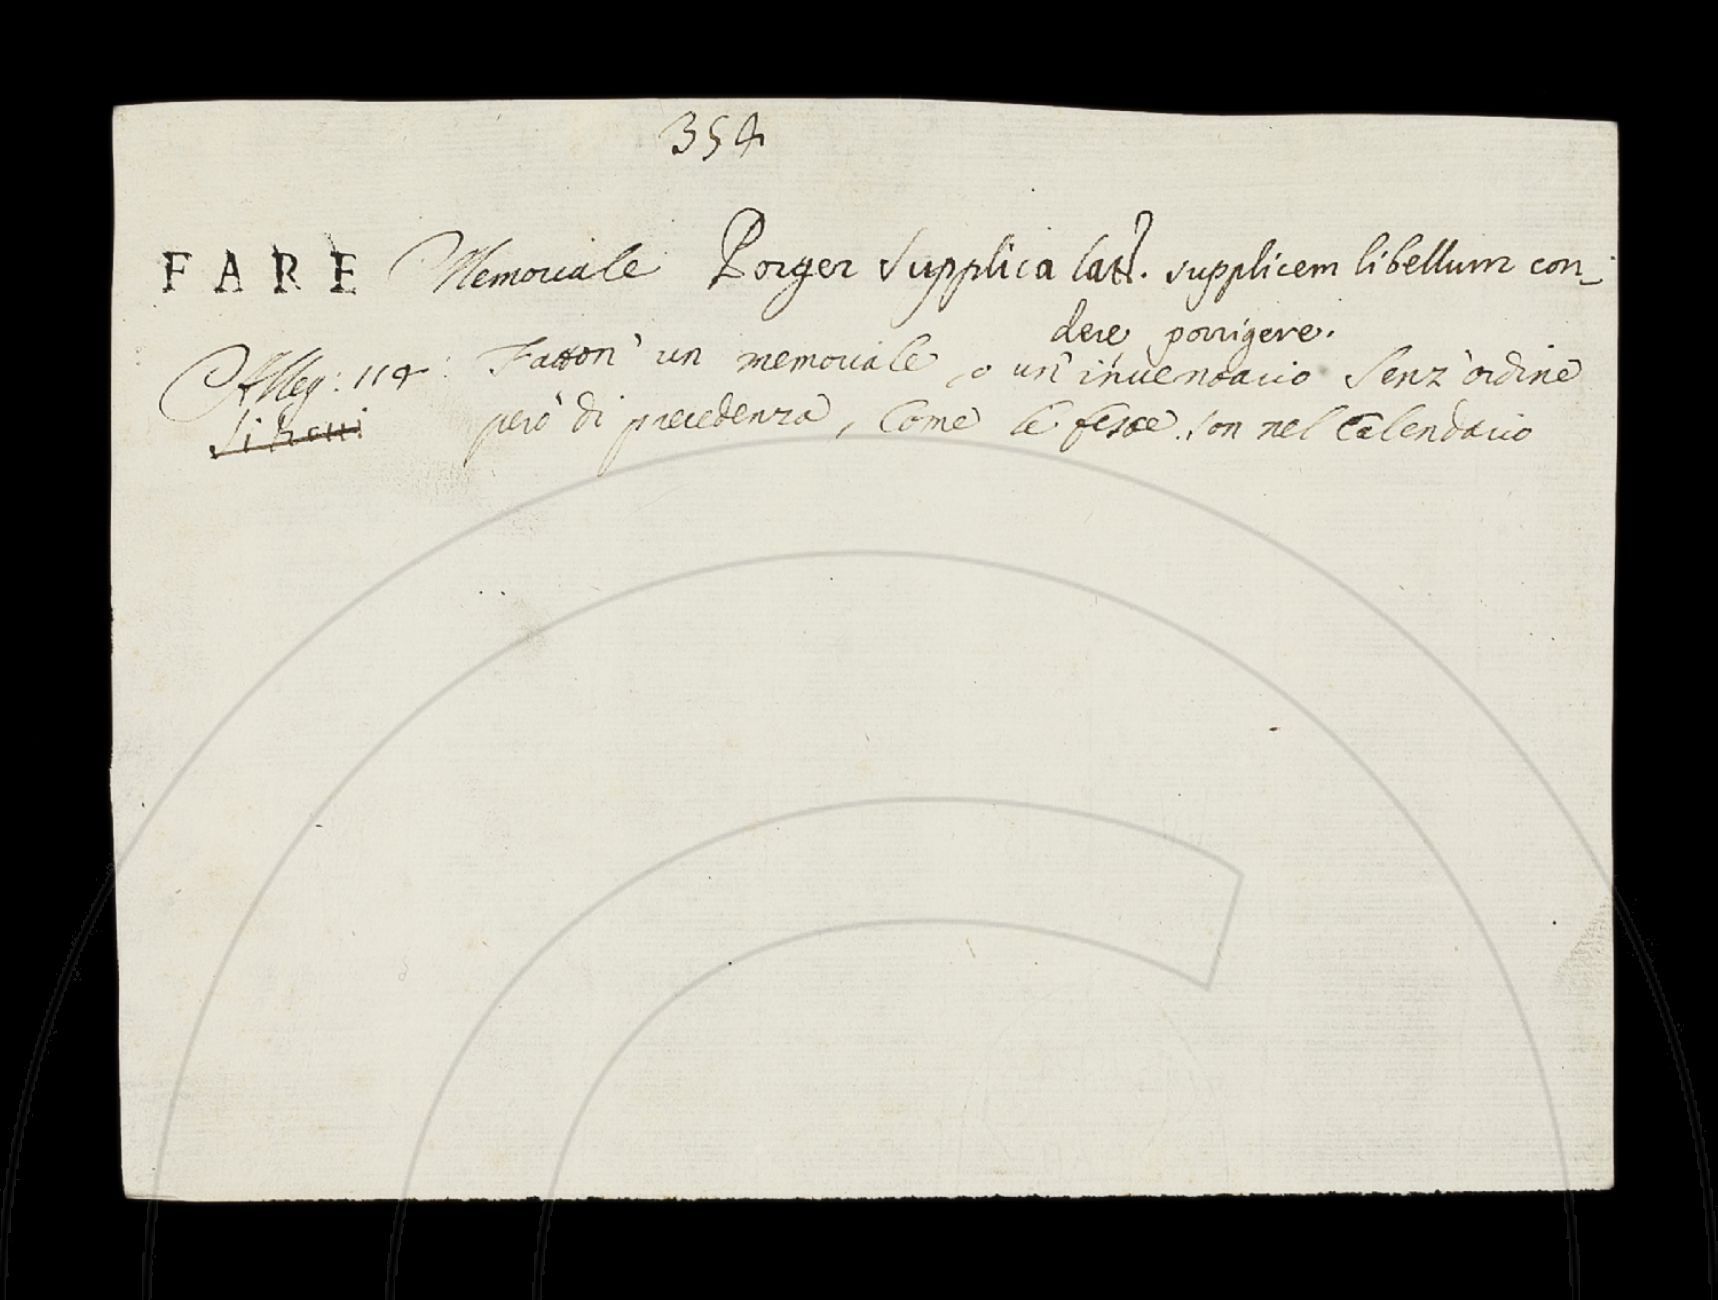 354
FARE Memoriale Porger Supplica latt. supplicem libellum con-
dere porrigere.
Alleg: 114: Fatton' un memoriale, o un' inventario Senz' ordine
però di precedenza, Come le feste son nel Calendario